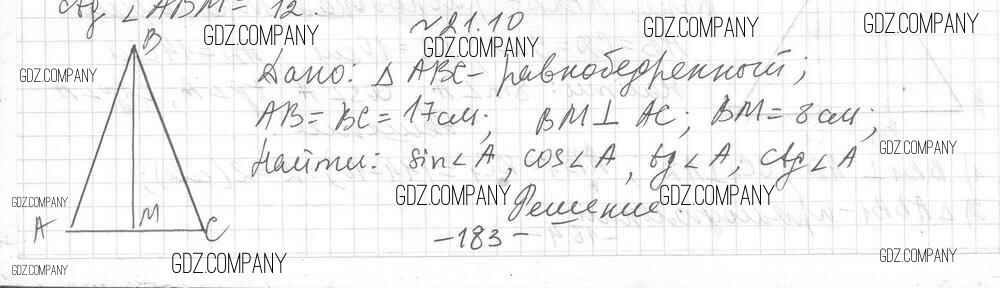 ctg ∠ABM = 12.
№21.10
Дано: △ ABC - равнобедренный;
AB = BC = 17см; BM ⊥ AC; BM = 8 см;
Найти: sin∠A, cos∠A, tg∠A, ctg∠A
Решение.
-183-
B
A
M
C
GDZ.COMPANY
GDZ.COMPANY
GDZ.COMPANY
GDZ.COMPANY
GDZ.COMPANY
GDZ.COMPANY
GDZ.COMPANY
GDZ.COMPANY
GDZ.COMPANY
GDZ.COMPANY
GDZ.COMPANY
GDZ.COMPANY